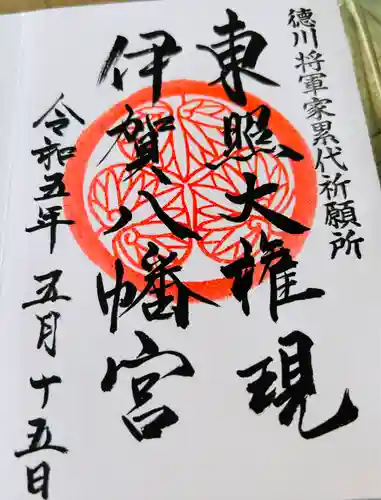 徳川将軍家累代祈願所
東照大権現
伊賀八幡宮
令和五年五月十五日